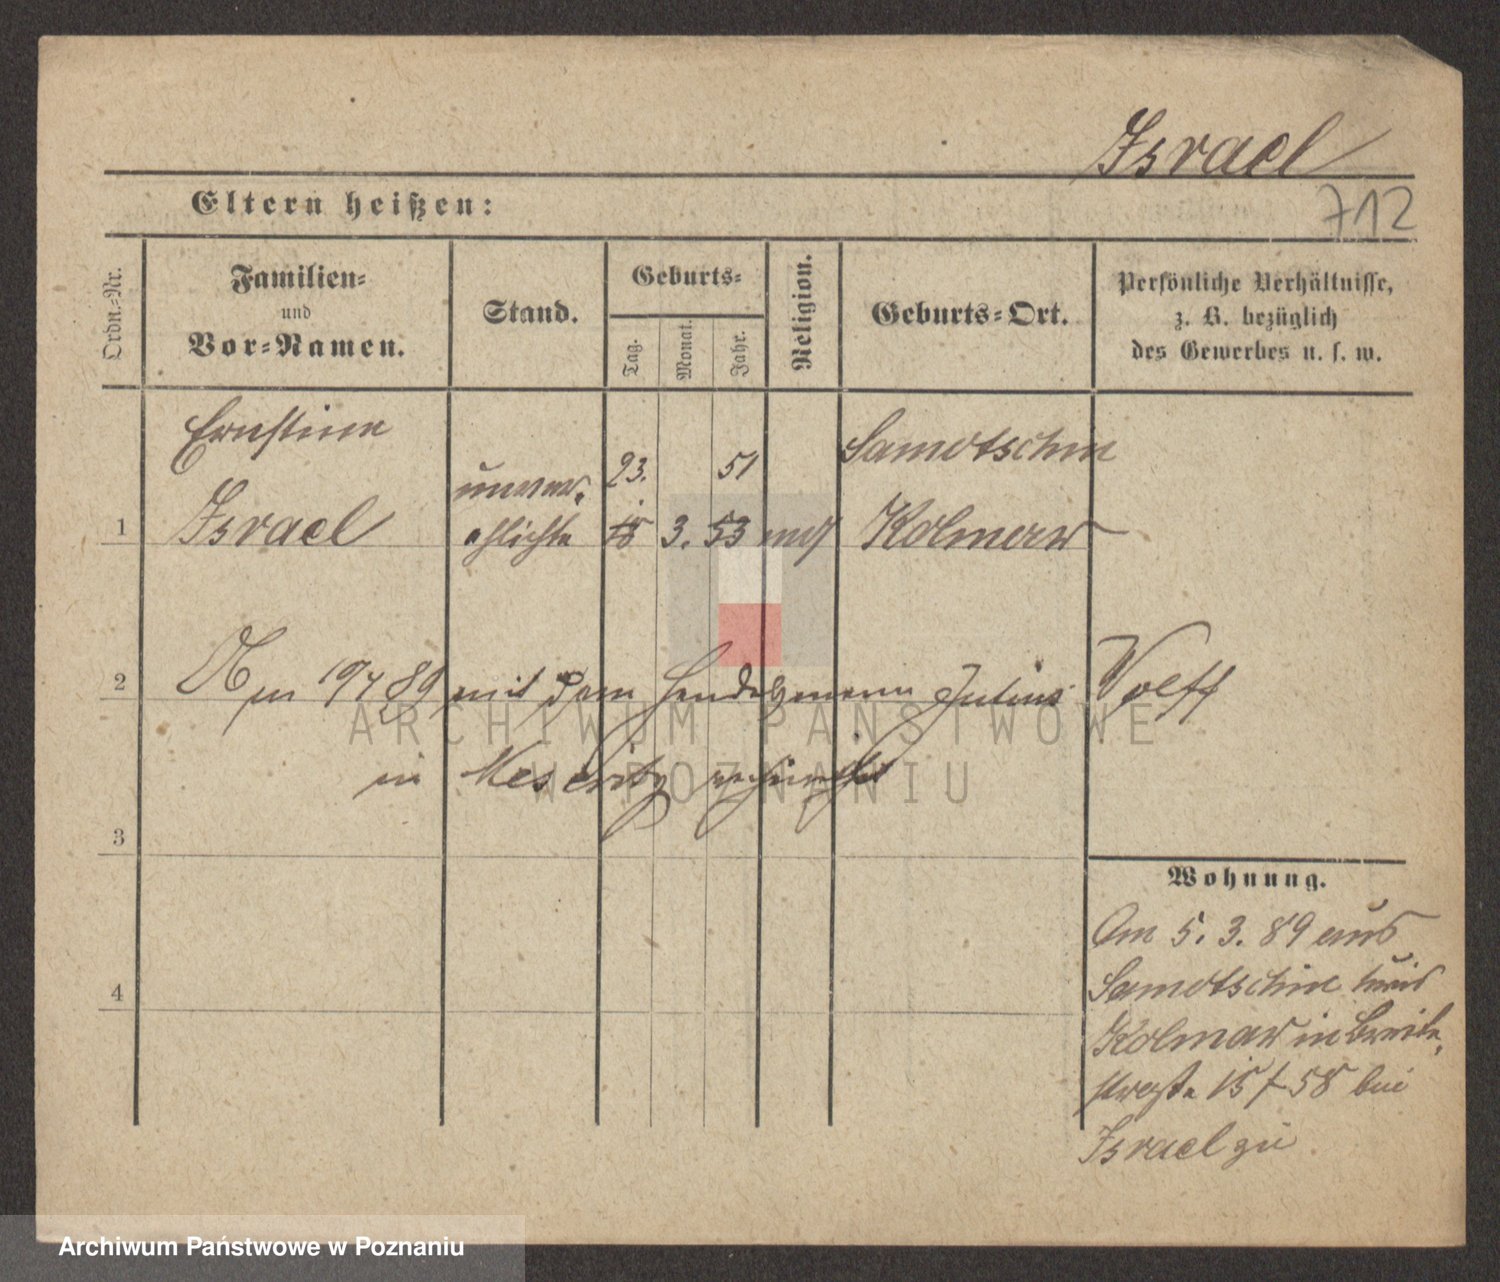 Israel
712
Eltern heißen:
Ordn.-Nr.
Familien-
und
Vor-Namen.
Stand.
Geburts-
Tag.
Monat.
Jahr.
Religion.
Geburts-Ort.
Persönliche Verhältnisse,
z. B. bezüglich
des Gewerbes u. s. w.
Ernstine
Israel
unver-
ehlichte
23.
18
3.
51
53
mos
Samotschin
Kolmar
1
2
Am 19/4 89 mit dem Handelsmann Julius Wolff
in Meseritz
3
4
Wohnung.
Am 5. 3. 89 aus
Samotschin Kreis
Kolmar in Breite-
straße 15 / 58 bei
Israel zu
ARCHIWUM PAŃSTWOWE
W POZNANIU
Archiwum Państwowe w Poznaniu